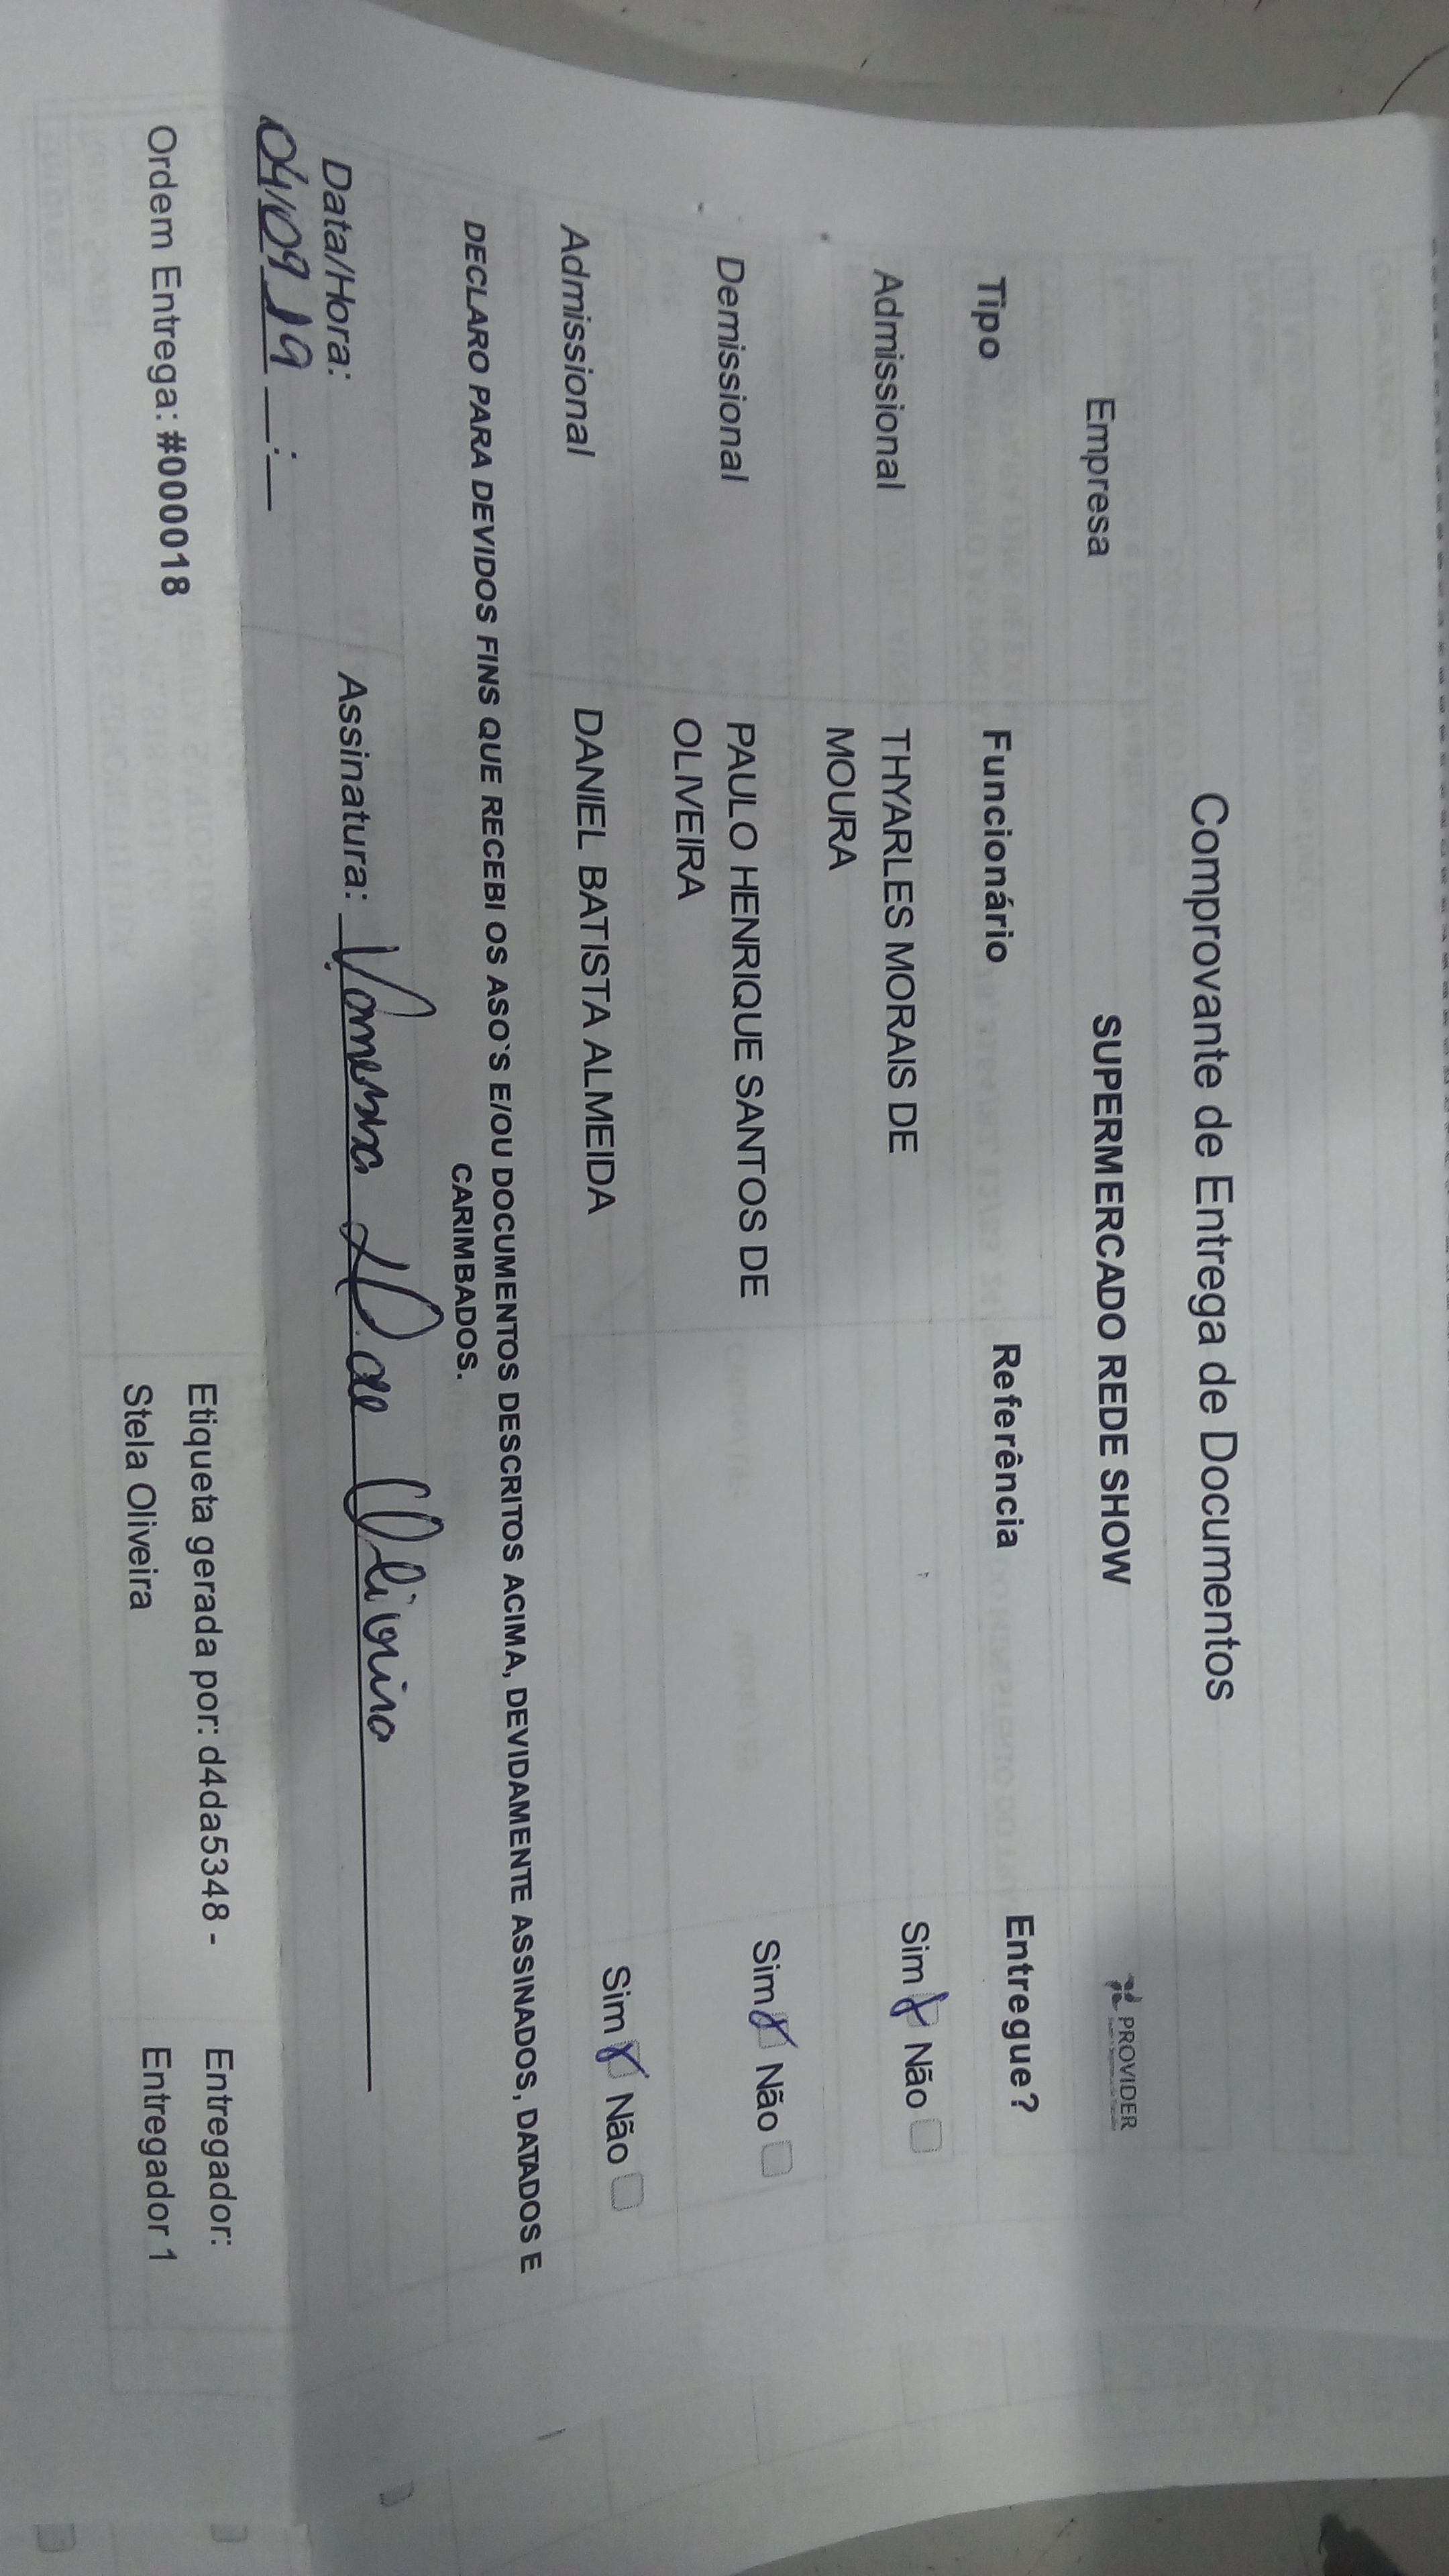 Comprovante de Entrega de Documentos
Empresa SUPERMERCADO REDE SHOW PROVIDER
Tipo Funcionário Referência Entregue?
Admissional THYARLES MORAIS DE Sim Não
MOURA
Demissional PAULO HENRIQUE SANTOS DE Sim Não
OLIVEIRA
Admissional DANIEL BATISTA ALMEIDA Sim Não
DECLARO PARA DEVIDOS FINS QUE RECEBI OS ASO`S E/OU DOCUMENTOS DESCRITOS ACIMA, DEVIDAMENTE ASSINADOS, DATADOS E
CARIMBADOS.
Data/Hora: Assinatura: Vanessa de Oliveira
04/09 19 __:__
Ordem Entrega: #000018 Etiqueta gerada por: d4da5348 - Entregador:
Stela Oliveira Entregador 1